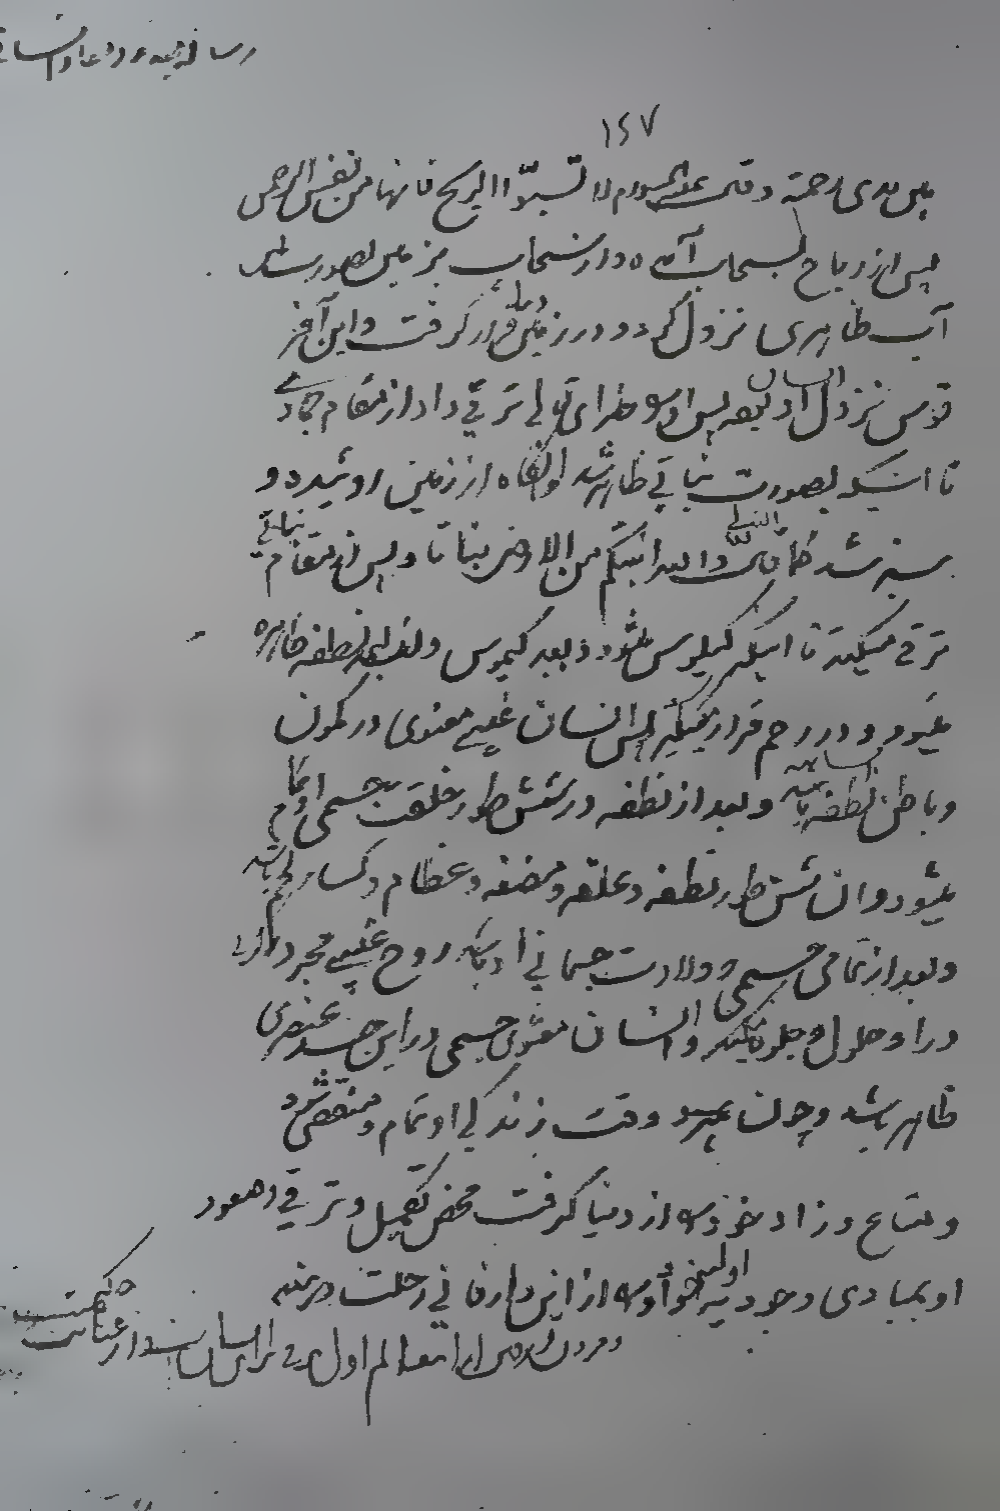 رساله مبدء و معاد انسانی
۱۴۷
بین یدی رحمته و قال علیه السلام لا تسبّوا الریح فانها من نفس الرحمن
پس از ریاح بسحاب آمده و از سحاب بزمین بصورت
آب ظاهری نزول کرد و در زمین قرار گرفت و این آخر
قوس نزول انسان بود پس او را خدای تعالی ترقی داد از مقام جمادی
تا اینکه بصورت نباتی ظاهر شد آنگاه از زمین روئیده و
سبز شد کما قال الله تعالی والله انبتکم من الارض نباتا و پس از مقام نباتی
ترقی میکند تا اینکه کیلوس میشود و بعد کیموس و بعد نطفه ظاهره
میشود و در رحم قرار میگیرد پس انسان غیبی معنوی در کمون
و باطن نطفه و بعد از نطفه در شش طور خلقت جسمی او تمام
میشود و آن شش طور نطفه و علقه و مضغه و عظام و کساء لحم باشد
و بعد از تمامی جسمی و ولادت جسمانی او روح غیبی مجرد
در او حلول و جلوه میکند و انسان معنوی جسمی در این جسد عنصری
ظاهر شد و چون بمیرد وقت زندگی او تمام و منقضی شود
و متاع و زاد خود را از دنیا گرفت محض تکمیل و ترقی و صعود
او بمبادی وجودیه اولیه خود او را از این دار فانی رحلت میدهند
و مردن اول عالم برای انسان از عنایت حکمت